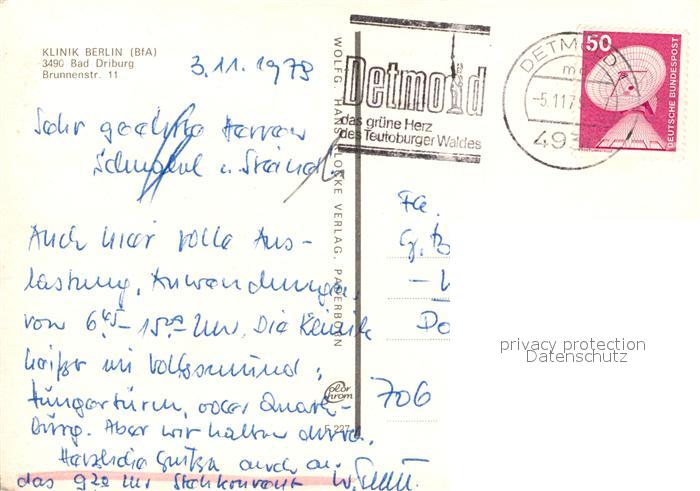 KLINIK BERLIN (BfA)
3490 Bad Driburg
Brunnenstr. 11
3.11.1978
Detmold
das grüne Herz
des Teutoburger Waldes
DETMOLD
-5.11.7
493
50
DEUTSCHE BUNDESPOST
WOLFG. HANS KLOCKE VERLAG, PADERBORN
Sehr geehrte Herren
Auch hier volle Aus-
lastung, Anwendungen
von 6.45 - 15.00 Uhr. Die Klinik
heißt im Volksmund:
Hungerturm, oder Quark-
burg. Aber wir halten durch.
Herzliche Grüße auch an
das 9.20 Uhr
Fa.
G. B
Do
706
color
chrom
F 227
privacy protection
Datenschutz